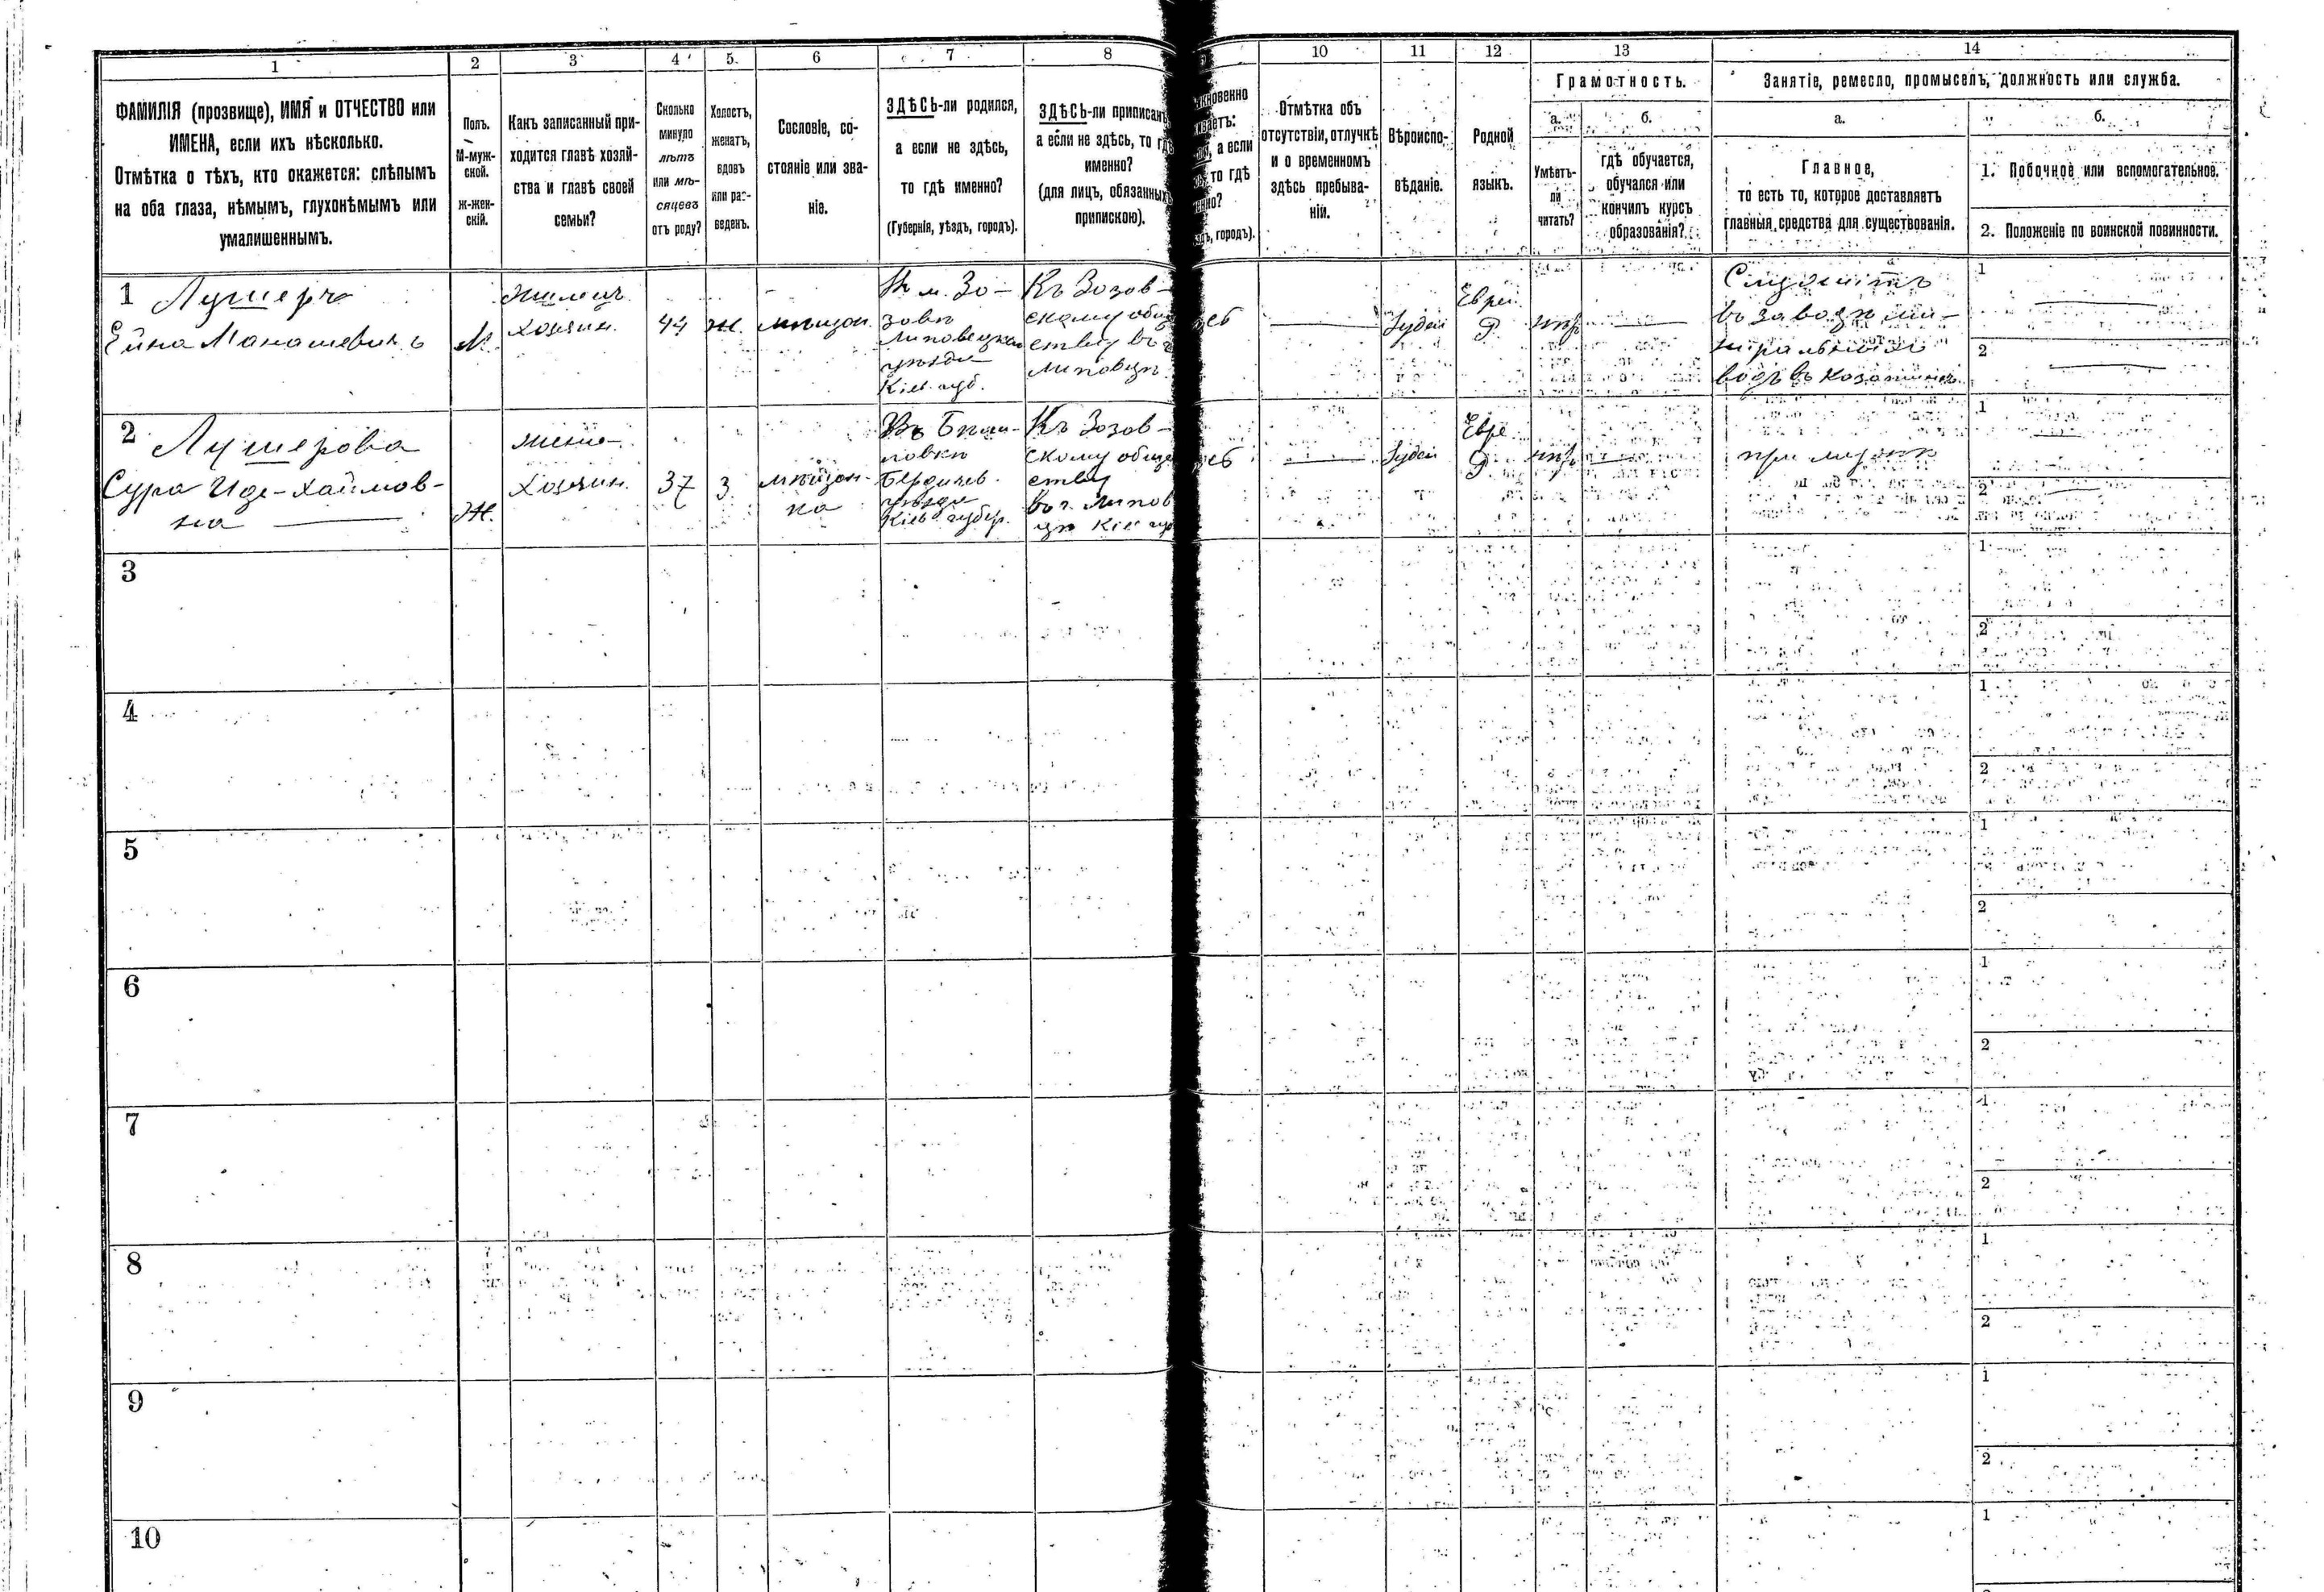 1
2
3
4
5.
6
7
8
10
11
12
13
14
ФАМИЛІЯ (прозвище), ИМЯ и ОТЧЕСТВО или
ИМЕНА, если ихъ нѣсколько.
Отмѣтка о тѣхъ, кто окажется: слѣпымъ
на оба глаза, нѣмымъ, глухонѣмымъ или
умалишеннымъ.
Полъ.
М-муж-
ской.
ж-жен-
скій.
Какъ записанный при-
ходится главѣ хозяй-
ства и главѣ своей
семьи?
Сколько
минуло
лѣтъ
или мѣ-
сяцевъ
отъ роду?
Холостъ,
женатъ,
вдовъ
или раз-
веденъ.
Сословіе, со-
стояніе или зва-
ніе.
ЗДѢСЬ-ли родился,
а если не здѣсь,
то гдѣ именно?
(Губернія, уѣздъ, городъ).
ЗДѢСЬ-ли приписанъ,
а если не здѣсь, то гдѣ
именно?
(для лицъ, обязанныхъ
припискою).
а если
то гдѣ
городъ).
Отмѣтка объ
отсутствіи, отлучкѣ
и о временномъ
здѣсь пребыва-
ніи.
Вѣроиспо-
вѣданіе.
Родной
языкъ.
Грамотность.
а.
Умѣетъ-
ли
читать?
б.
гдѣ обучается,
обучался или
кончилъ курсъ
образованія?
Занятіе, ремесло, промыселъ, должность или служба.
а.
Главное,
то есть то, которое доставляетъ
главныя средства для существованія.
б.
1. Побочное или вспомогательное.
2. Положеніе по воинской повинности.
1 Лушеръ
Манашевичъ
М.
хозяин.
44
Ж.
мѣщан.
м. Зо-
зовѣ
Липовецкаго
уѣзда
Кіев. губ.
Къ Зозов-
скому общ
ству въ г
Липовцѣ
Іудей
Еврей
Служитъ
въ заводѣ ми-
неральныхъ
водъ въ Козатинѣ
1
2
2 Лушерова
Сура Иде-Хаимов-
на
Ж.
жена
хозяин.
37
З.
мѣщан-
ка
Въ
Бердичев.
уѣзда
Кіев. губер.
Къ Зозов-
скому обще
ству
въ г. Липов
цѣ Кіев губ
Іудей
Евре
при мужѣ
1
2
3
1
2
4
1
2
5
1
2
6
1
2
7
1
2
8
1
2
9
1
2
10
1